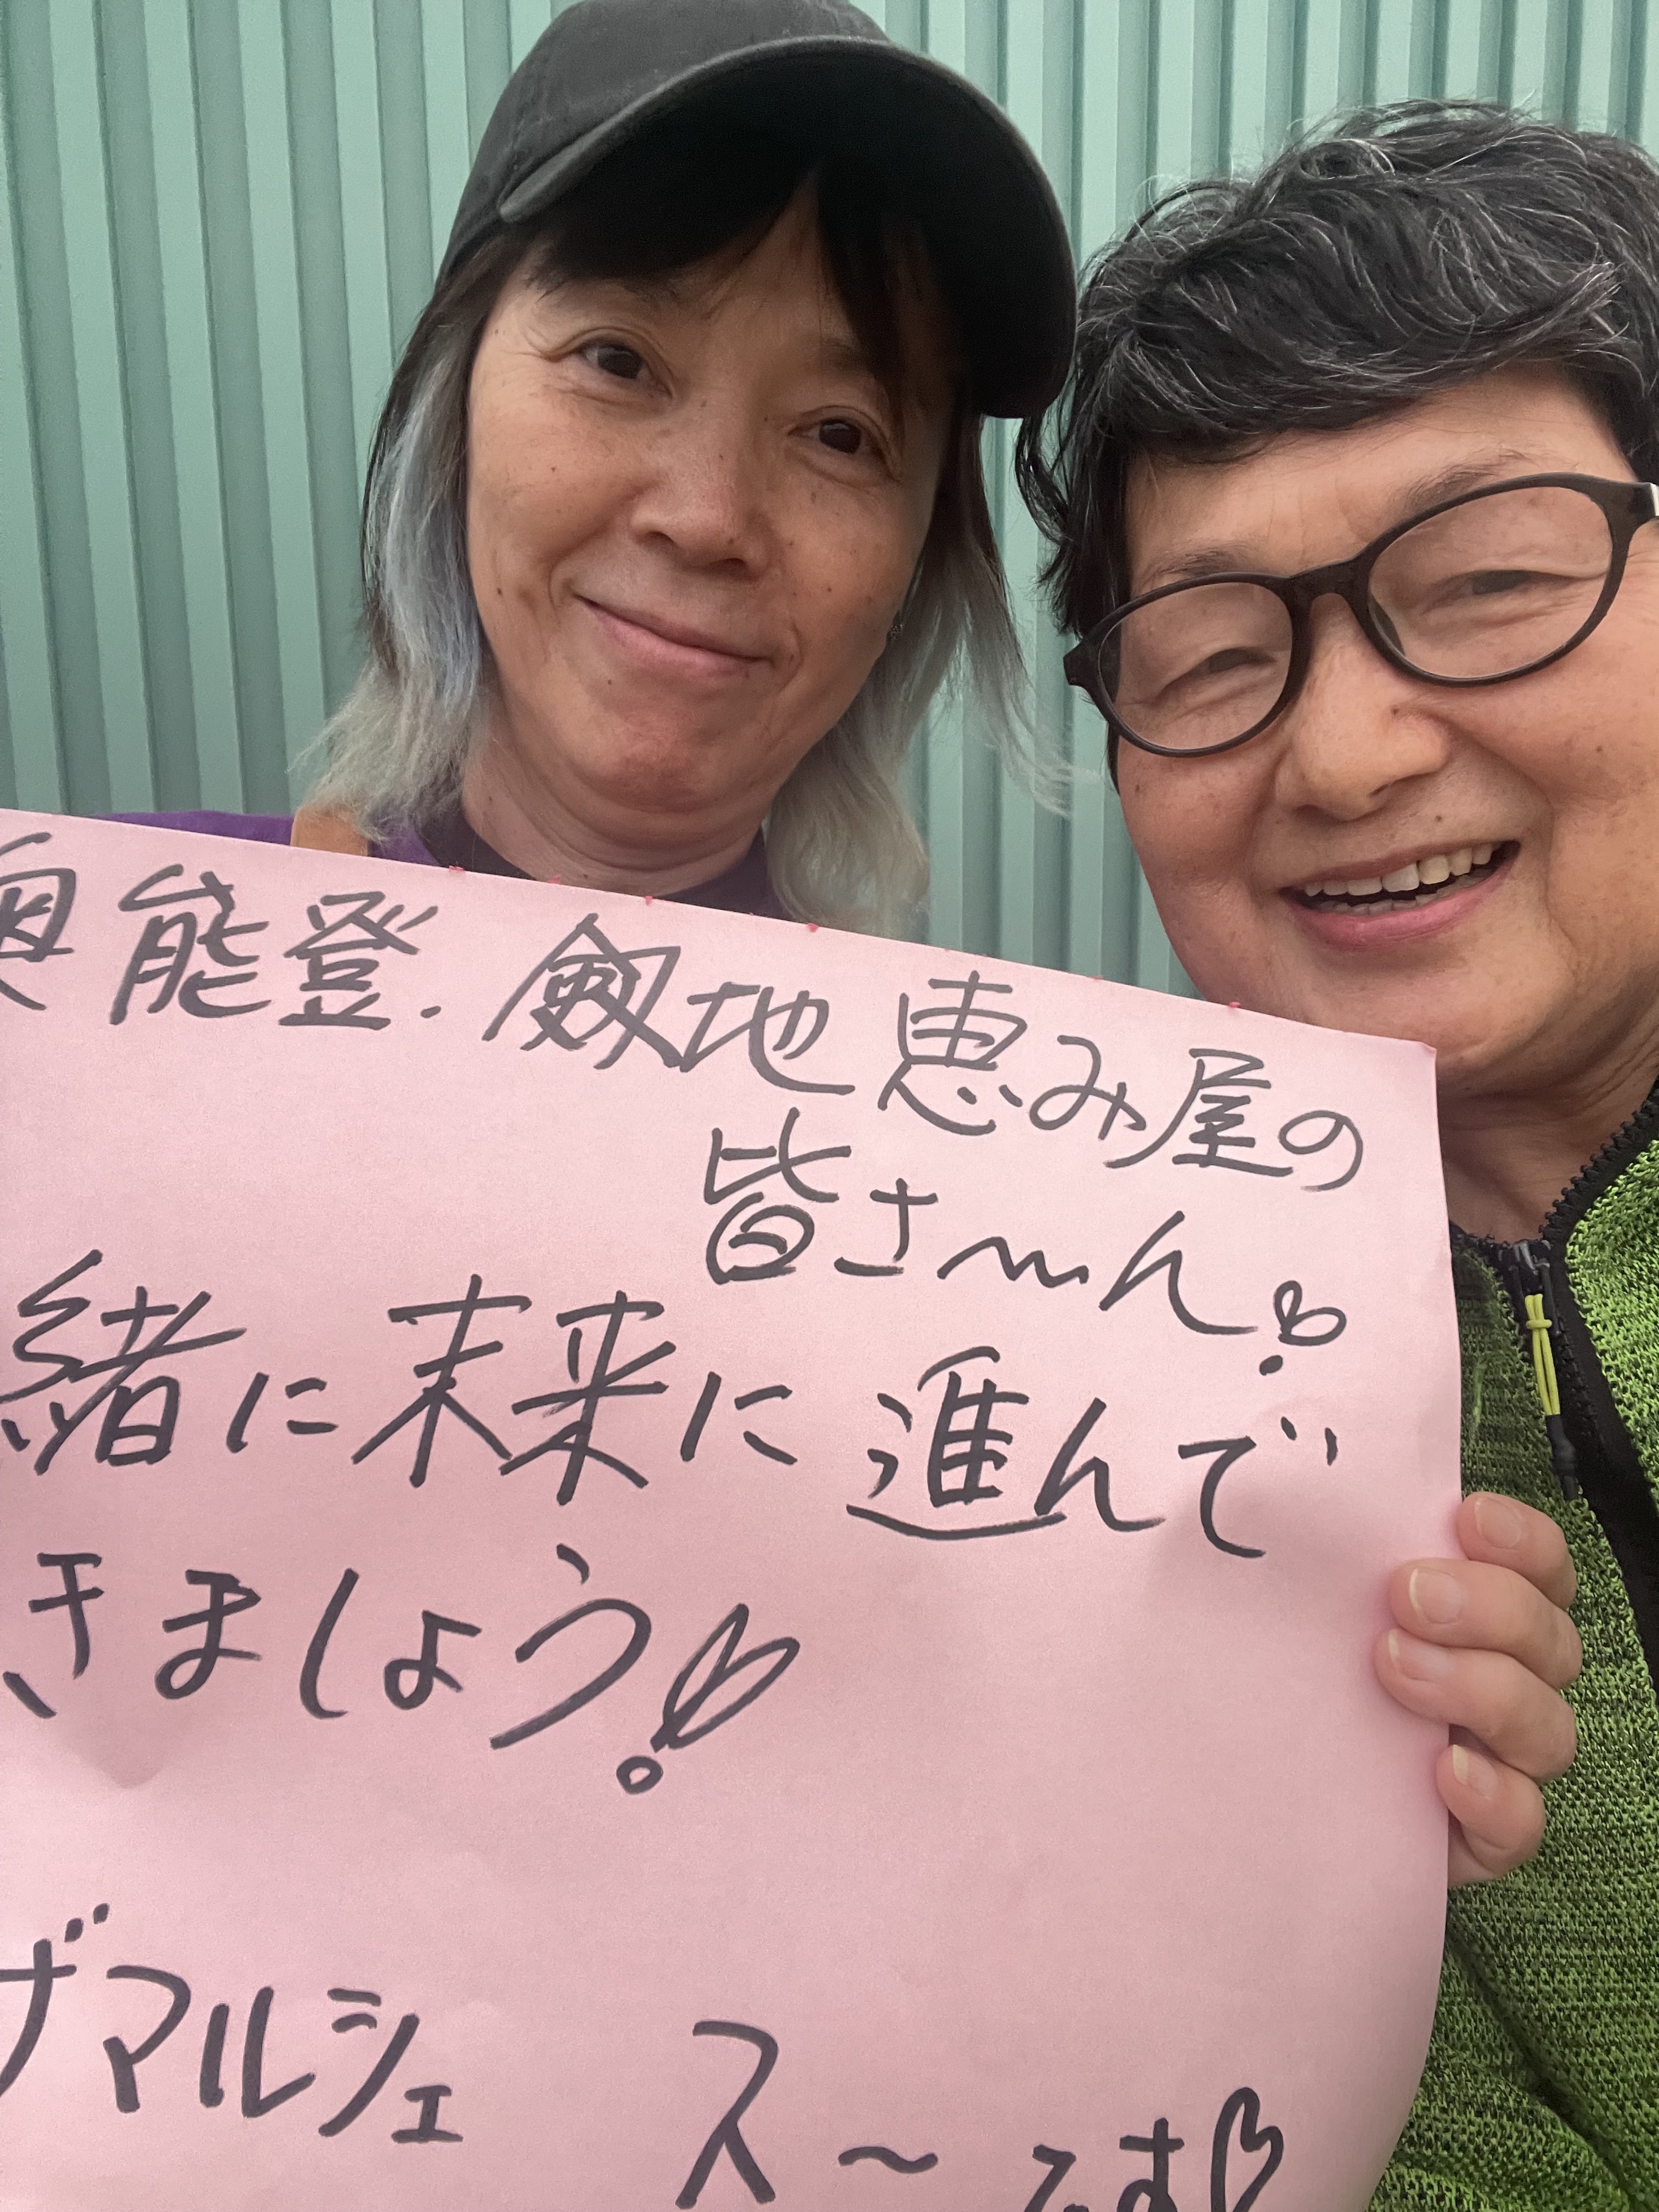 奥能登.剱地恵み屋の
皆さ〜ん♡
緒に未来に進んで
きましょう!♡
ザマルシェ ス〜です♡